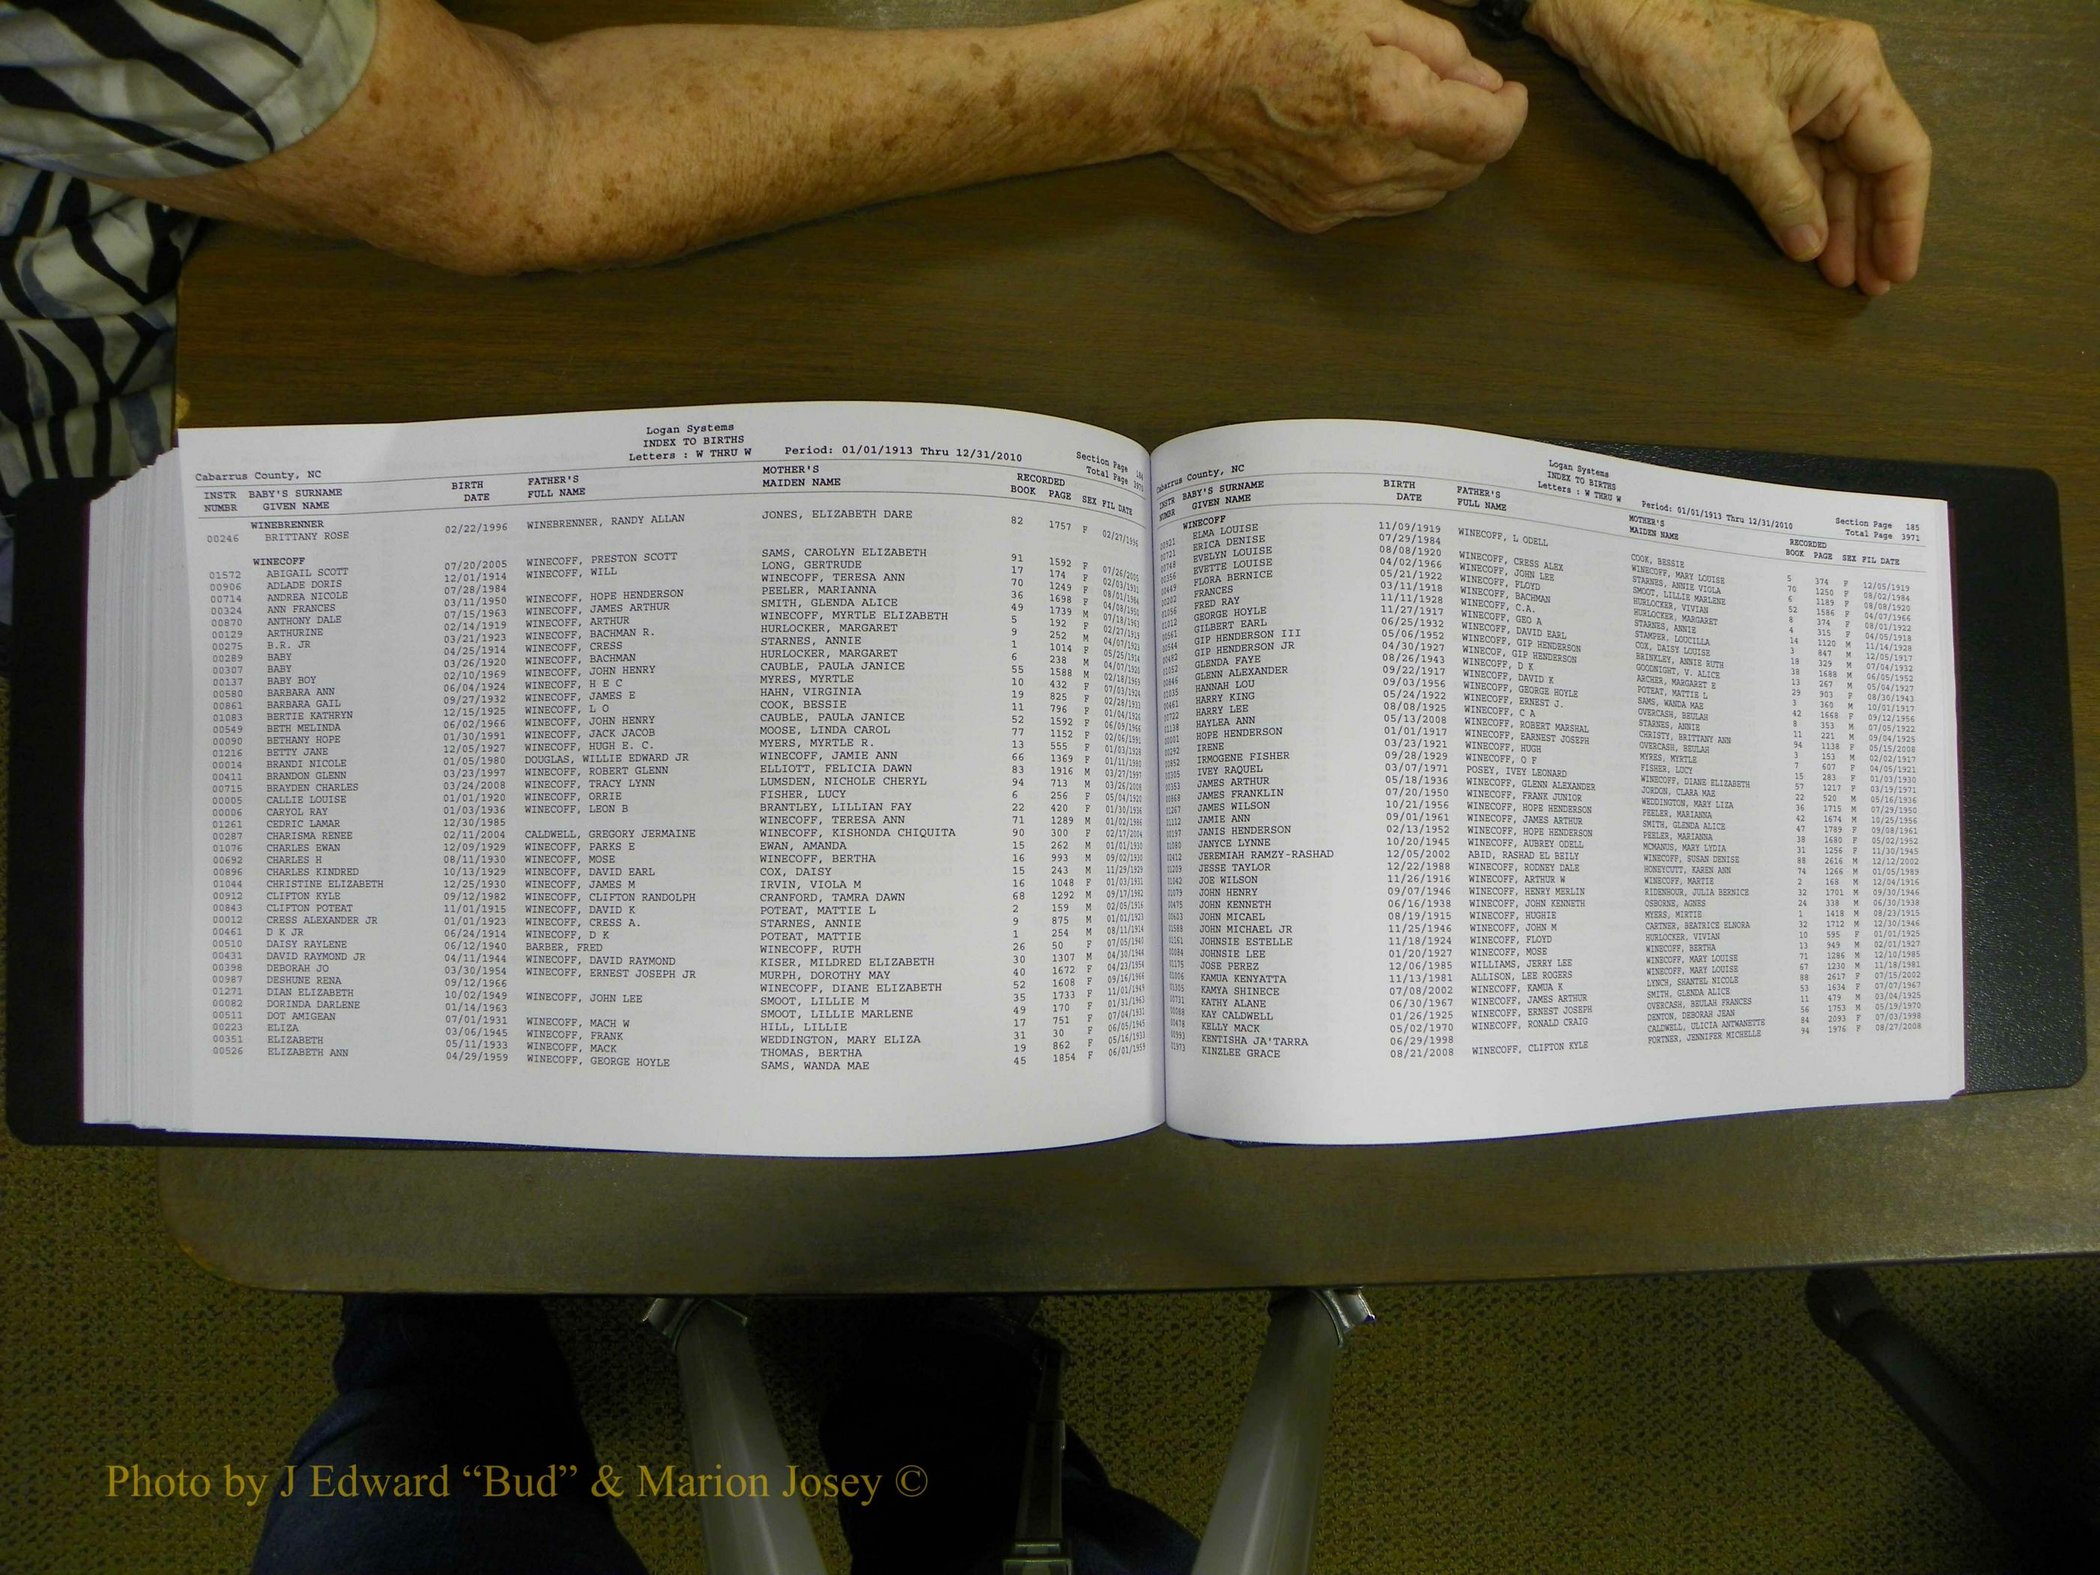 Logan Systems
INDEX TO BIRTHS
Letters : W THRU W Period: 01/01/1913 Thru 12/31/2010
Section Page 184
Total Page 3971
Cabarrus County, NC
INSTR NUMBR BABY'S SURNAME GIVEN NAME BIRTH DATE FATHER'S FULL NAME MOTHER'S MAIDEN NAME RECORDED BOOK PAGE SEX FIL DATE
WINEBRENNER
00246 BRITTANY ROSE 02/22/1996 WINEBRENNER, RANDY ALLAN JONES, ELIZABETH DARE 82 1757 F 02/27/1996
WINECOFF
01572 ABIGAIL SCOTT 07/20/2005 WINECOFF, PRESTON SCOTT SAMS, CAROLYN ELIZABETH 91 1592 F 07/26/2005
00906 ADLADE DORIS 12/01/1914 WINECOFF, WILL LONG, GERTRUDE 17 174 F 02/03/1931
00714 ANDREA NICOLE 07/28/1984 WINECOFF, TERESA ANN 70 1249 F 08/01/1984
00324 ANN FRANCES 03/11/1950 WINECOFF, HOPE HENDERSON PEELER, MARIANNA 36 1698 F 04/08/1950
00870 ANTHONY DALE 07/15/1963 WINECOFF, JAMES ARTHUR SMITH, GLENDA ALICE 49 1739 M 07/18/1963
00129 ARTHURINE 02/14/1919 WINECOFF, ARTHUR WINECOFF, MYRTLE ELIZABETH 5 192 F 02/27/1919
00275 B.R. JR 03/21/1923 WINECOFF, BACHMAN R. HURLOCKER, MARGARET 9 252 M 04/07/1923
00289 BABY 04/25/1914 WINECOFF, CRESS STARNES, ANNIE 1 1014 F 05/25/1914
00307 BABY 03/26/1920 WINECOFF, BACHMAN HURLOCKER, MARGARET 6 238 M 04/07/1920
00137 BABY BOY 02/10/1969 WINECOFF, JOHN HENRY CAUBLE, PAULA JANICE 55 1588 M 02/18/1969
00580 BARBARA ANN 06/04/1924 WINECOFF, H E C MYRES, MYRTLE 10 432 F 07/03/1924
00861 BARBARA GAIL 09/27/1932 WINECOFF, JAMES E HAHN, VIRGINIA 19 825 F 02/28/1933
01083 BERTIE KATHRYN 12/15/1925 WINECOFF, L O COOK, BESSIE 11 796 F 01/04/1926
00549 BETH MELINDA 06/02/1966 WINECOFF, JOHN HENRY CAUBLE, PAULA JANICE 52 1592 F 06/09/1966
00090 BETHANY HOPE 01/30/1991 WINECOFF, JACK JACOB MOOSE, LINDA CAROL 77 1152 F 02/06/1991
01216 BETTY JANE 12/05/1927 WINECOFF, HUGH E. C. MYERS, MYRTLE R. 13 555 F 01/03/1928
00014 BRANDI NICOLE 01/05/1980 DOUGLAS, WILLIE EDWARD JR WINECOFF, JAMIE ANN 66 1369 F 01/11/1980
00411 BRANDON GLENN 03/23/1997 WINECOFF, ROBERT GLENN ELLIOTT, FELICIA DAWN 83 1916 M 03/27/1997
00715 BRAYDEN CHARLES 03/24/2008 WINECOFF, TRACY LYNN LUMSDEN, NICHOLE CHERYL 94 713 M 03/26/2008
00005 CALLIE LOUISE 01/01/1920 WINECOFF, ORRIE FISHER, LUCY 6 256 F 05/04/1920
00006 CARYOL RAY 01/03/1936 WINECOFF, LEON B BRANTLEY, LILLIAN FAY 22 420 F 01/30/1936
01261 CEDRIC LAMAR 12/30/1985 WINECOFF, TERESA ANN 71 1289 M 01/02/1986
00287 CHARISMA RENEE 02/11/2004 CALDWELL, GREGORY JERMAINE WINECOFF, KISHONDA CHIQUITA 90 300 F 02/17/2004
01076 CHARLES EWAN 12/09/1929 WINECOFF, PARKS E EWAN, AMANDA 15 262 M 01/01/1930
00692 CHARLES H 08/11/1930 WINECOFF, MOSE WINECOFF, BERTHA 16 993 M 09/02/1930
00896 CHARLES KINDRED 10/13/1929 WINECOFF, DAVID EARL COX, DAISY 15 243 M 11/29/1929
01044 CHRISTINE ELIZABETH 12/25/1930 WINECOFF, JAMES M IRVIN, VIOLA M 16 1048 F 01/03/1931
00912 CLIFTON KYLE 09/12/1982 WINECOFF, CLIFTON RANDOLPH CRANFORD, TAMRA DAWN 68 1292 M 09/17/1982
00843 CLIFTON POTEAT 11/01/1915 WINECOFF, DAVID K POTEAT, MATTIE L 2 159 M 02/05/1916
00012 CRESS ALEXANDER JR 01/01/1923 WINECOFF, CRESS A. STARNES, ANNIE 9 875 M 01/01/1923
00461 D K JR 06/24/1914 WINECOFF, D K POTEAT, MATTIE 1 254 M 08/11/1914
00510 DAISY RAYLENE 06/12/1940 BARBER, FRED WINECOFF, RUTH 26 50 F 07/05/1940
00431 DAVID RAYMOND JR 04/11/1944 WINECOFF, DAVID RAYMOND KISER, MILDRED ELIZABETH 30 1307 M 04/30/1944
00398 DEBORAH JO 03/30/1954 WINECOFF, ERNEST JOSEPH JR MURPH, DOROTHY MAY 40 1672 F 04/23/1954
00987 DESHUNE RENA 09/12/1966 WINECOFF, DIANE ELIZABETH 52 1608 F 09/16/1966
01271 DIAN ELIZABETH 10/02/1949 WINECOFF, JOHN LEE SMOOT, LILLIE M 35 1733 F 11/01/1949
00082 DORINDA DARLENE 01/14/1963 SMOOT, LILLIE MARLENE 49 170 F 01/31/1963
00511 DOT AMIGEAN 07/01/1931 WINECOFF, MACH W HILL, LILLIE 17 751 F 07/04/1931
00223 ELIZA 03/06/1945 WINECOFF, FRANK WEDDINGTON, MARY ELIZA 31 30 F 06/05/1945
00351 ELIZABETH 05/11/1933 WINECOFF, MACK THOMAS, BERTHA 19 862 F 05/16/1933
00526 ELIZABETH ANN 04/29/1959 WINECOFF, GEORGE HOYLE SAMS, WANDA MAE 45 1854 F 06/01/1959
Logan Systems
INDEX TO BIRTHS
Letters : W THRU W Period: 01/01/1913 Thru 12/31/2010
Section Page 185
Total Page 3971
Cabarrus County, NC
INSTR NUMBR BABY'S SURNAME GIVEN NAME BIRTH DATE FATHER'S FULL NAME MOTHER'S MAIDEN NAME RECORDED BOOK PAGE SEX FIL DATE
WINECOFF
00921 ELMA LOUISE 11/09/1919 WINECOFF, L ODELL COOK, BESSIE 5 374 F 12/05/1919
00721 ERICA DENISE 07/29/1984 WINECOFF, MARY LOUISE 70 1250 F 08/02/1984
00748 EVELYN LOUISE 08/08/1920 WINECOFF, CRESS ALEX STARNES, ANNIE VIOLA 6 1189 F 08/08/1920
00356 EVETTE LOUISE 04/02/1966 WINECOFF, JOHN LEE SMOOT, LILLIE MARLENE 52 1586 F 04/07/1966
00449 FLORA BERNICE 05/21/1922 WINECOFF, FLOYD HURLOCKER, VIVIAN 8 374 F 08/01/1922
00202 FRANCES 03/11/1918 WINECOFF, BACHMAN HURLOCKER, MARGARET 4 315 F 04/05/1918
01056 FRED RAY 11/11/1928 WINECOFF, C.A. STARNES, ANNIE 14 1120 M 11/14/1928
01012 GEORGE HOYLE 11/27/1917 WINECOFF, GEO A STAMPER, LOUCILLA 3 847 M 12/05/1917
00561 GILBERT EARL 06/25/1932 WINECOFF, DAVID EARL COX, DAISY LOUISE 18 329 M 07/04/1932
00544 GIP HENDERSON III 05/06/1952 WINECOFF, GIP HENDERSON BRINKLEY, ANNIE RUTH 38 1688 M 06/05/1952
00482 GIP HENDERSON JR 04/30/1927 WINECOF, GIP HENDERSON GOODNIGHT, V. ALICE 13 267 M 05/04/1927
01052 GLENDA FAYE 08/26/1943 WINECOFF, D K ARCHER, MARGARET E 29 903 F 08/30/1943
00846 GLENN ALEXANDER 09/22/1917 WINECOFF, DAVID K POTEAT, MATTIE L 3 360 M 10/01/1917
01035 HANNAH LOU 09/03/1956 WINECOFF, GEORGE HOYLE SAMS, WANDA MAE 42 1668 F 09/12/1956
00461 HARRY KING 05/24/1922 WINECOFF, ERNEST J. OVERCASH, BEULAH 8 353 M 07/05/1922
00722 HARRY LEE 08/08/1925 WINECOFF, C A STARNES, ANNIE 11 221 M 09/04/1925
01138 HAYLEA ANN 05/13/2008 WINECOFF, ROBERT MARSHAL CHRISTY, BRITTANY ANN 94 1138 F 05/15/2008
00001 HOPE HENDERSON 01/01/1917 WINECOFF, EARNEST JOSEPH OVERCASH, BEULAH 3 153 M 02/02/1917
00292 IRENE 03/23/1921 WINECOFF, HUGH MYRES, MYRTLE 7 607 F 04/05/1921
00852 IRMOGENE FISHER 09/28/1929 WINECOFF, O F FISHER, LUCY 15 283 F 01/03/1930
00305 IVEY RAQUEL 03/07/1971 POSEY, IVEY LEONARD WINECOFF, DIANE ELIZABETH 57 1217 F 03/19/1971
00353 JAMES ARTHUR 05/18/1936 WINECOFF, GLENN ALEXANDER JORDON, CLARA MAE 22 520 M 05/16/1936
00868 JAMES FRANKLIN 07/20/1950 WINECOFF, FRANK JUNIOR WEDDINGTON, MARY LIZA 36 1715 M 07/29/1950
01267 JAMES WILSON 10/21/1956 WINECOFF, HOPE HENDERSON PEELER, MARIANNA 42 1674 M 10/25/1956
01112 JAMIE ANN 09/01/1961 WINECOFF, JAMES ARTHUR SMITH, GLENDA ALICE 47 1789 F 09/08/1961
00197 JANIS HENDERSON 02/13/1952 WINECOFF, HOPE HENDERSON PEELER, MARIANNA 38 1680 F 05/02/1952
01080 JANYCE LYNNE 10/20/1945 WINECOFF, AUBREY ODELL MCMANUS, MARY LYDIA 31 1256 F 11/30/1945
02412 JEREMIAH RAMZY-RASHAD 12/05/2002 ABID, RASHAD EL BEILY WINECOFF, SUSAN DENISE 88 2616 M 12/12/2002
01209 JESSE TAYLOR 12/22/1988 WINECOFF, RODNEY DALE HONEYCUTT, KAREN ANN 74 1266 M 01/05/1989
01042 JOE WILSON 11/26/1916 WINECOFF, ARTHUR W WINECOFF, MARTIE 2 168 M 12/04/1916
01079 JOHN HENRY 09/07/1946 WINECOFF, HENRY MERLIN RIDENHOUR, JULIA BERNICE 32 1701 M 09/30/1946
00475 JOHN KENNETH 06/16/1938 WINECOFF, JOHN KENNETH OSBORNE, AGNES 24 338 M 06/30/1938
00603 JOHN MICAEL 08/19/1915 WINECOFF, HUGHIE MYERS, MIRTIE 1 1418 M 08/23/1915
01588 JOHN MICHAEL JR 11/25/1946 WINECOFF, JOHN M CARTNER, BEATRICE ELNORA 32 1712 M 12/30/1946
01161 JOHNSIE ESTELLE 11/18/1924 WINECOFF, FLOYD HURLOCKER, VIVIAN 10 595 F 01/01/1925
00084 JOHNSIE LEE 01/20/1927 WINECOFF, MOSE WINECOFF, BERTHA 13 949 M 02/01/1927
01175 JOSE PEREZ 12/06/1985 WILLIAMS, JERRY LEE WINECOFF, MARY LOUISE 71 1286 M 12/10/1985
01006 KAMUA KENYATTA 11/13/1981 ALLISON, LEE ROGERS WINECOFF, MARY LOUISE 67 1230 M 11/18/1981
01305 KAMYA SHINECE 07/08/2002 WINECOFF, KAMUA K LYNCH, SHANTEL NICOLE 88 2617 F 07/15/2002
00731 KATHY ALANE 06/30/1967 WINECOFF, JAMES ARTHUR SMITH, GLENDA ALICE 53 1634 F 07/07/1967
00088 KAY CALDWELL 01/26/1925 WINECOFF, ERNEST JOSEPH OVERCASH, BEULAH FRANCES 11 479 M 03/04/1925
00478 KELLY MACK 05/02/1970 WINECOFF, RONALD CRAIG DENTON, DEBORAH JEAN 56 1753 M 05/19/1970
00993 KENTISHA JA'TARRA 06/29/1998 CALDWELL, ULICIA ANTWANETTE 84 2093 F 07/03/1998
01973 KINZLEE GRACE 08/21/2008 WINECOFF, CLIFTON KYLE FORTNER, JENNIFER MICHELLE 94 1976 F 08/27/2008
Photo by J Edward “Bud” & Marion Josey ©